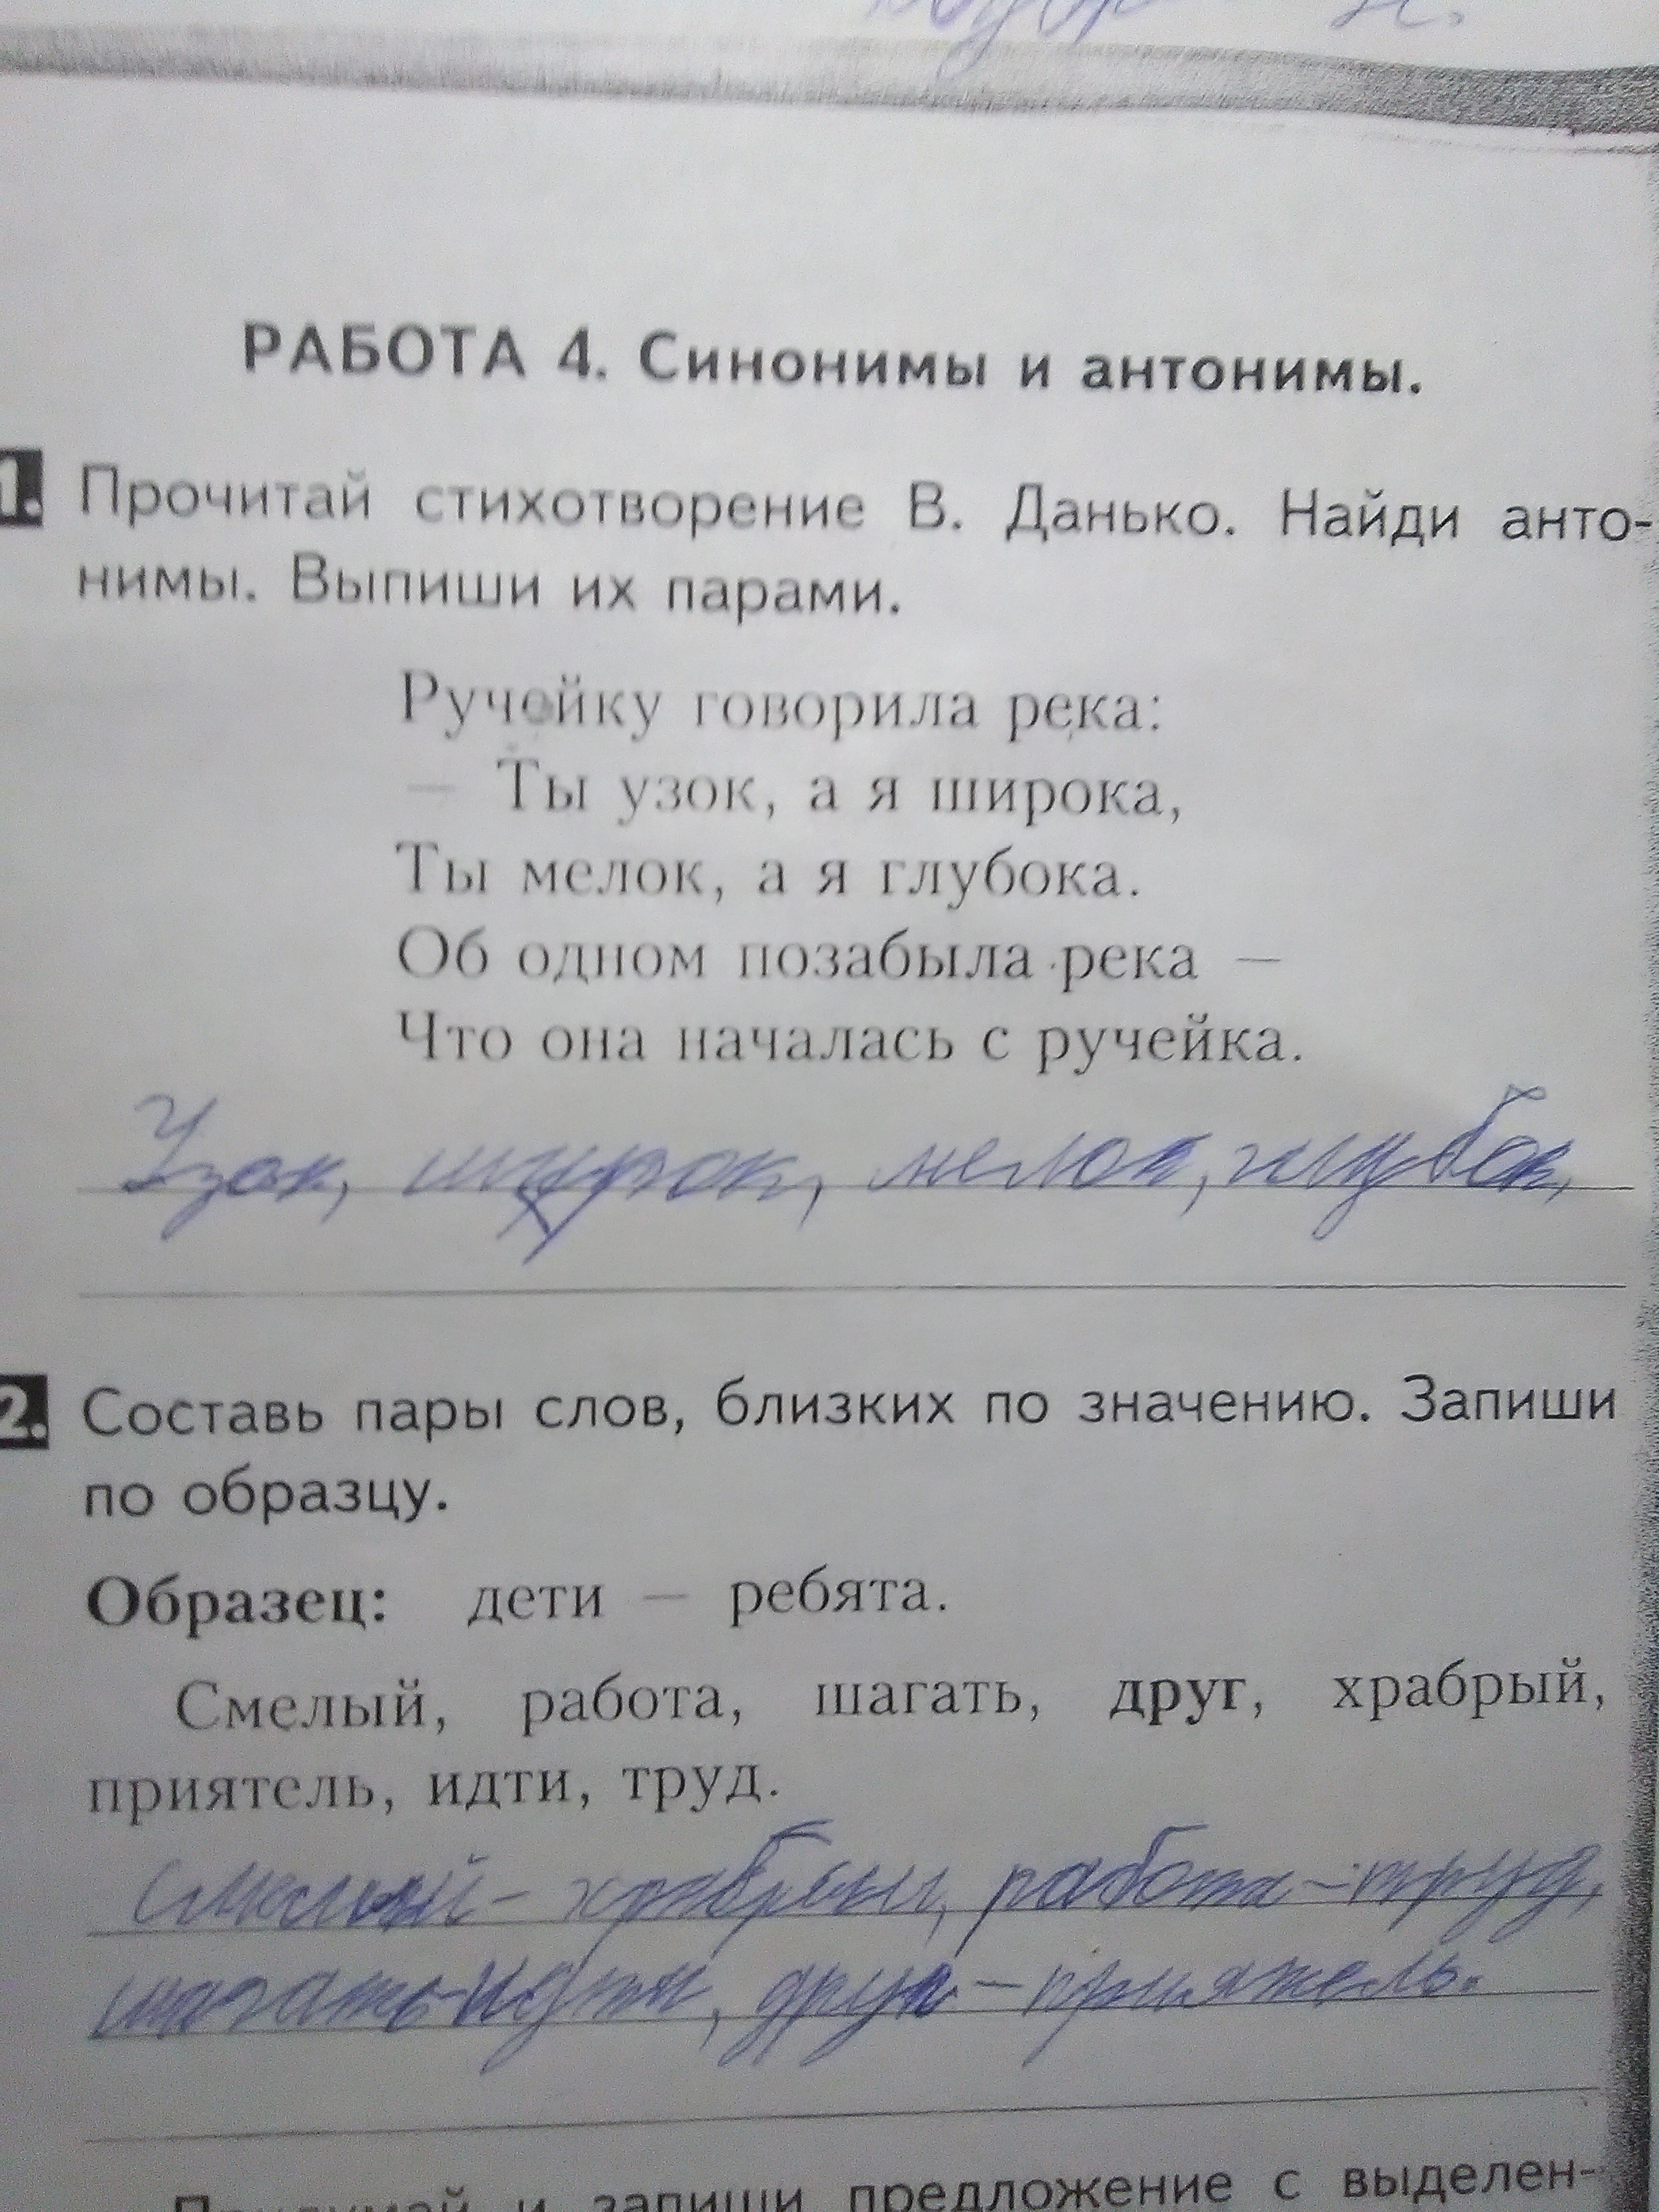 РАБОТА 4. Синонимы и антонимы.
1. Прочитай стихотворение В. Данько. Найди анто-
нимы. Выпиши их парами.
Ручейку говорила река:
— Ты узок, а я широка,
Ты мелок, а я глубока.
Об одном позабыла река —
Что она началась с ручейка.
Узок, широк, мелок, глубок,
2. Составь пары слов, близких по значению. Запиши
по образцу.
Образец: дети — ребята.
Смелый, работа, шагать, друг, храбрый,
приятель, идти, труд.
Смелый - храбрый, работа - труд,
шагать-идти, друг - приятель.
Придумай и запиши предложение с выделен-